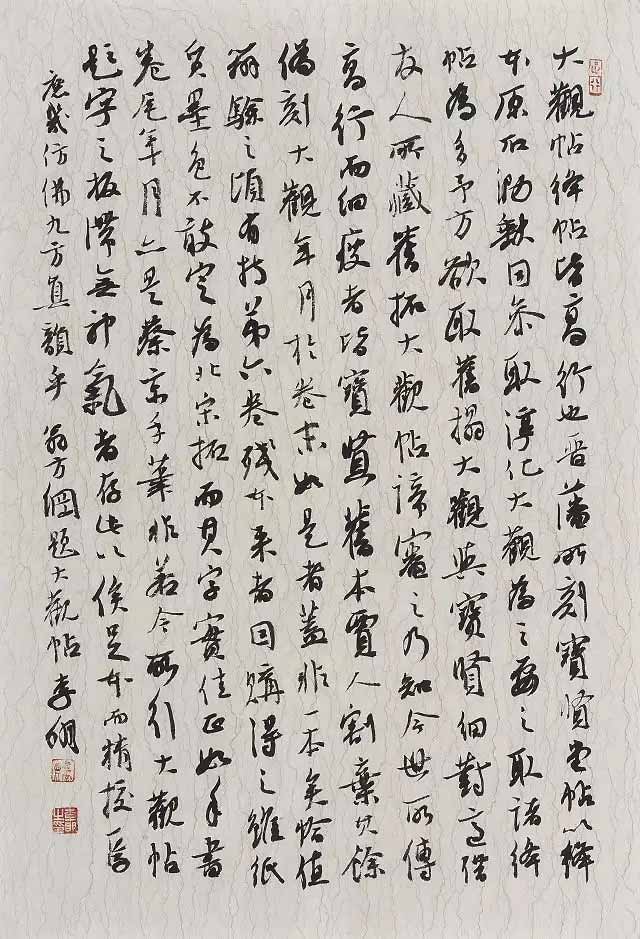 大觀帖絳帖皆高行也晉藩所刻寶賢堂帖以絳
本原石泐缺因參取淳化大觀為之要之取諸絳
帖為多予方欲取舊搨大觀與寶賢細對適借
友人所藏舊拓大觀帖諦審之乃知今世所傳
高行而細瘦者皆寶賢舊本賈人割棄其餘
偽刻大觀年月於卷末如是者蓋非一本矣恰值
研驗之頃有持第六卷殘本來者因購得之雖紙
質墨色不敢定為北宋拓而其字實佳正如手書
卷尾年月亦是蔡京手筆非若今所行大觀帖
題字之板滯無神氣者存此以俟足本而精校焉
庶幾仿佛九方真韻乎 翁方綱題大觀帖 李明